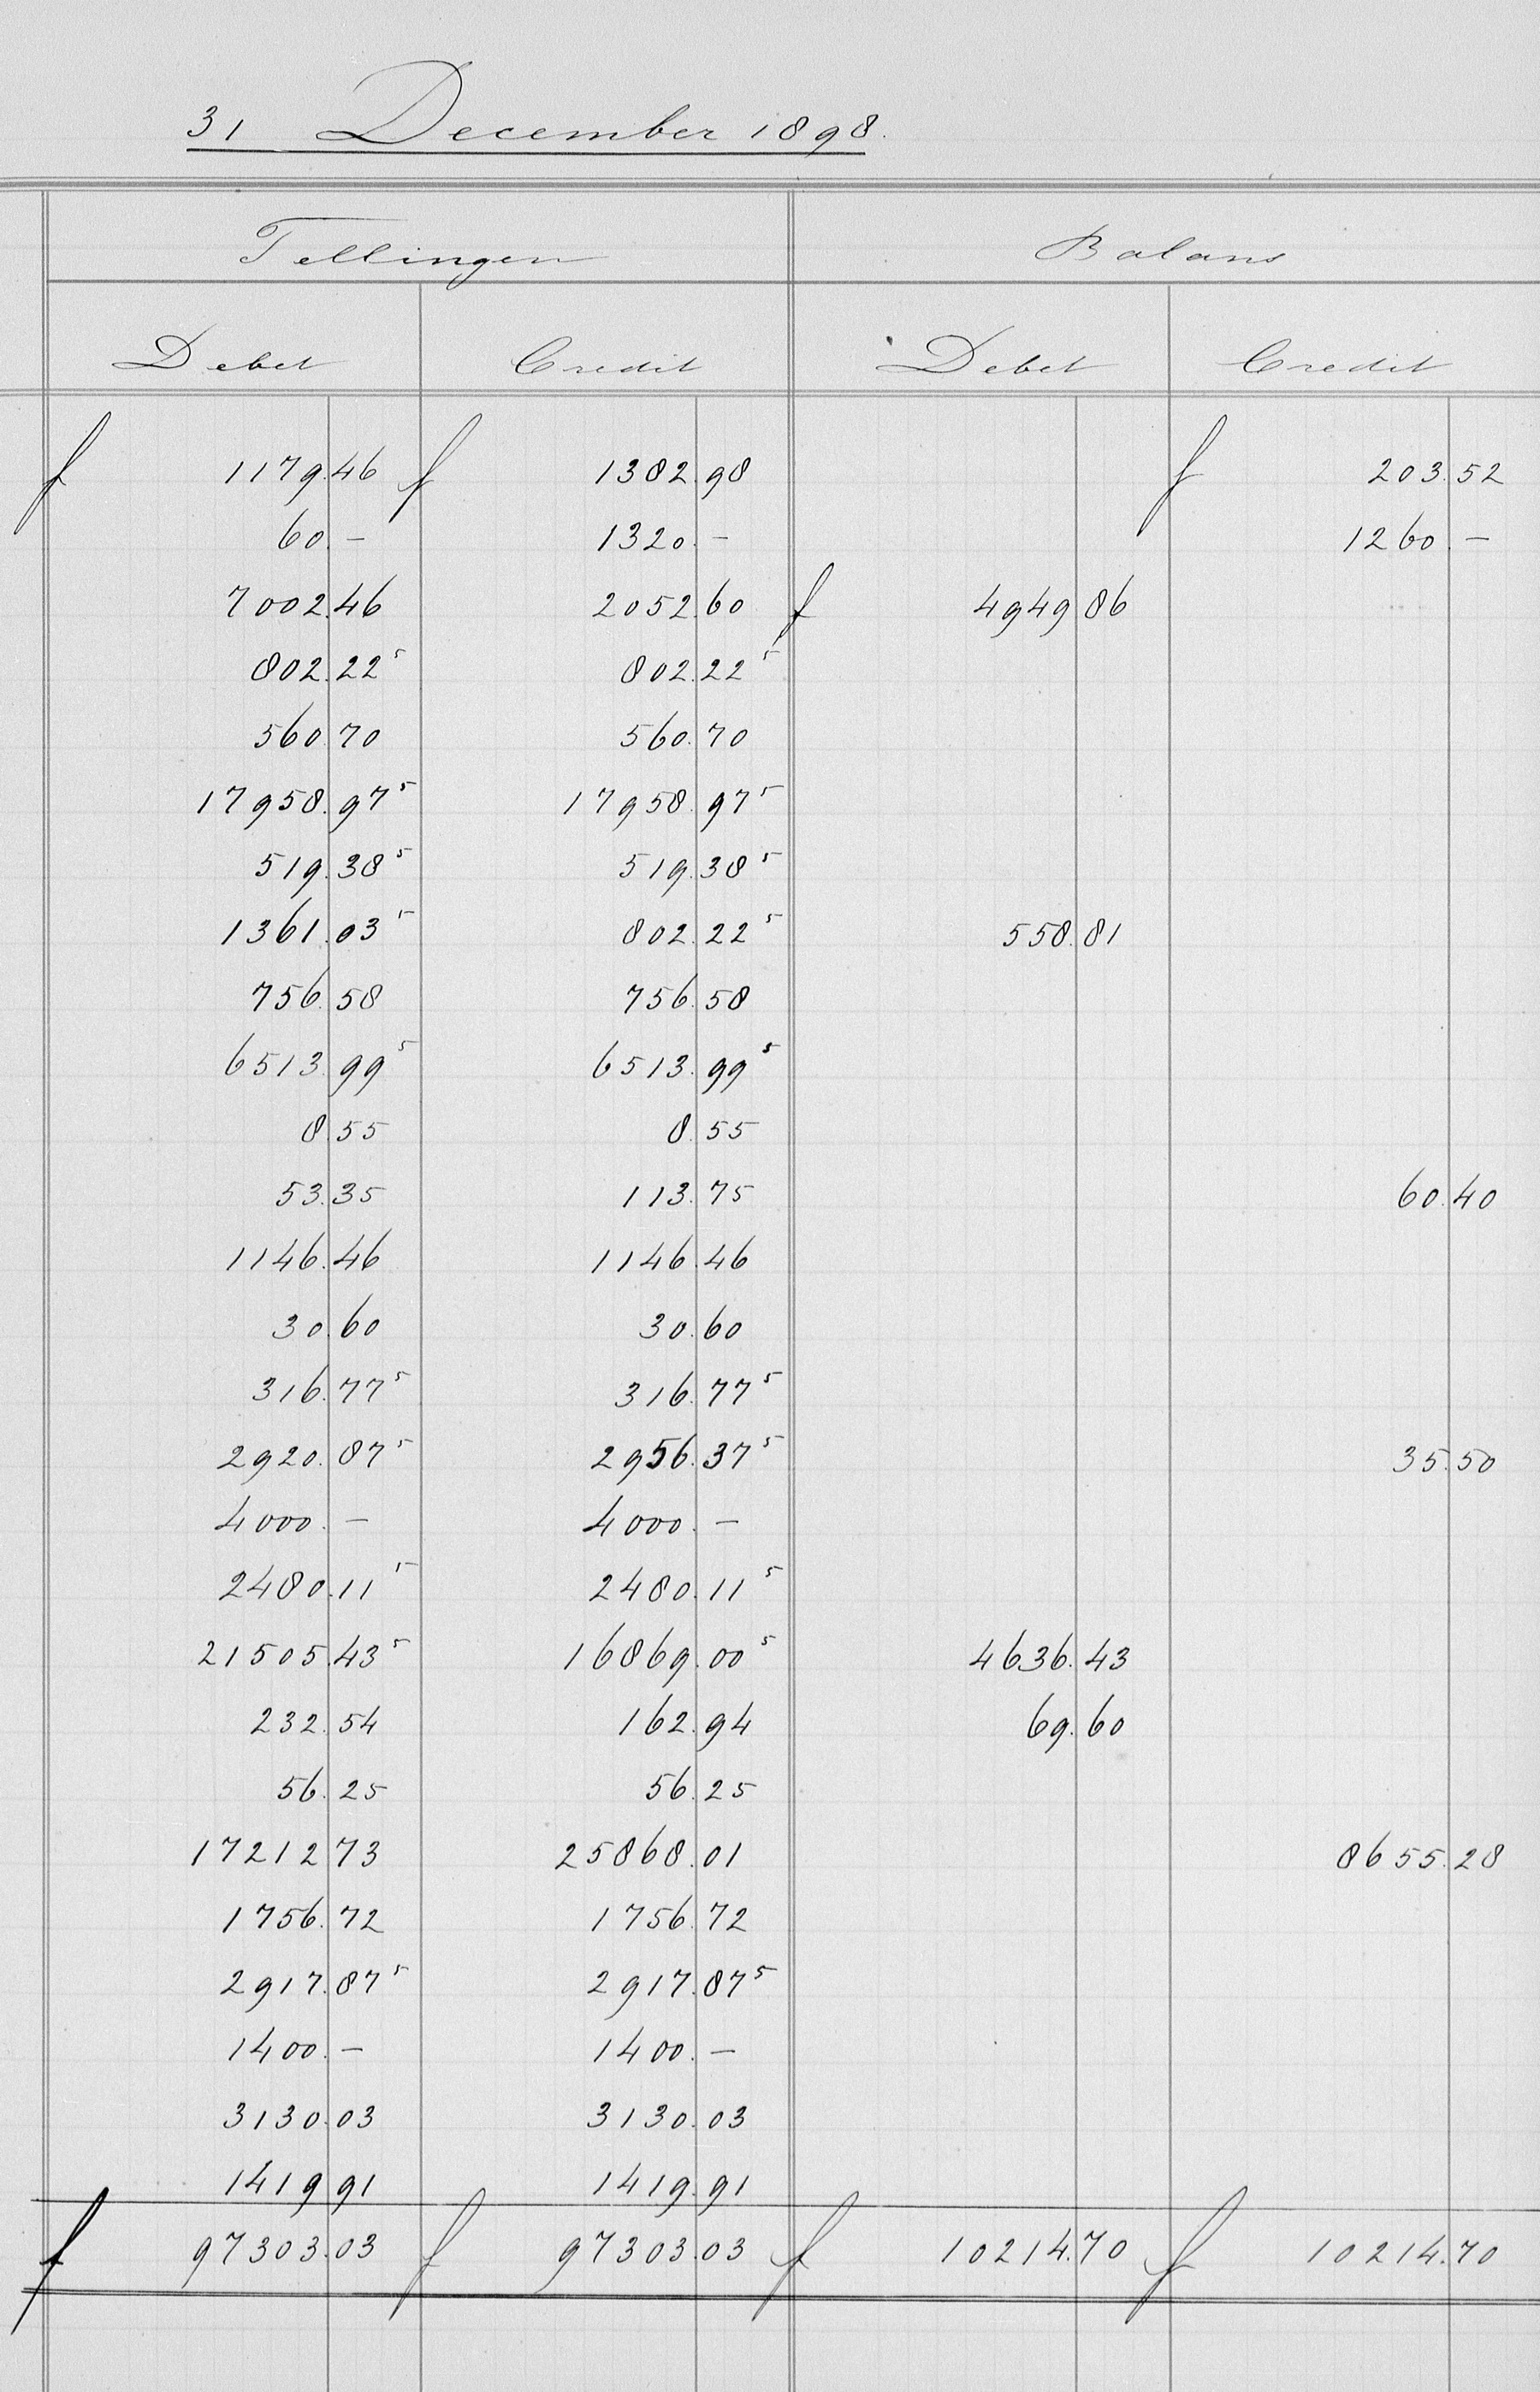 31 December 1898.
Tellingen Balans
Debet Credit Debet Credit
f 1179.46 f 1382.98 f 203.52
60.- 1320.- 1260.-
7002.46 2052.60 f 4949 86
802.22⁵ 802.22⁵
560 70 560.70
17958.97⁵ 17958.97⁵
519.38⁵ 519.38⁵
1361.03⁵ 802.22⁵ 558.81
756.58 756.58
6513.99⁵ 6513.99⁵
8.55 8.55
53.35 113.75 60.40
1146.46 1146.46
30.60 30.60
316.77⁵ 316.77⁵
2920.87⁵ 2956.37⁵ 35.50
4000.- 4000.-
2480.11⁵ 2480.11⁵
21505.43⁵ 16869.00⁵ 4636.43
232.54 162.94 69.60
56.25 56.25
17212 73 25868.01 8655.28
1756.72 1756.72
2917.87⁵ 2917.87⁵
1400.- 1400.-
3130.03 3130.03
1419 91 1419.91
f 97303.03 f 97303.03 f 10214.70 f 10214.70